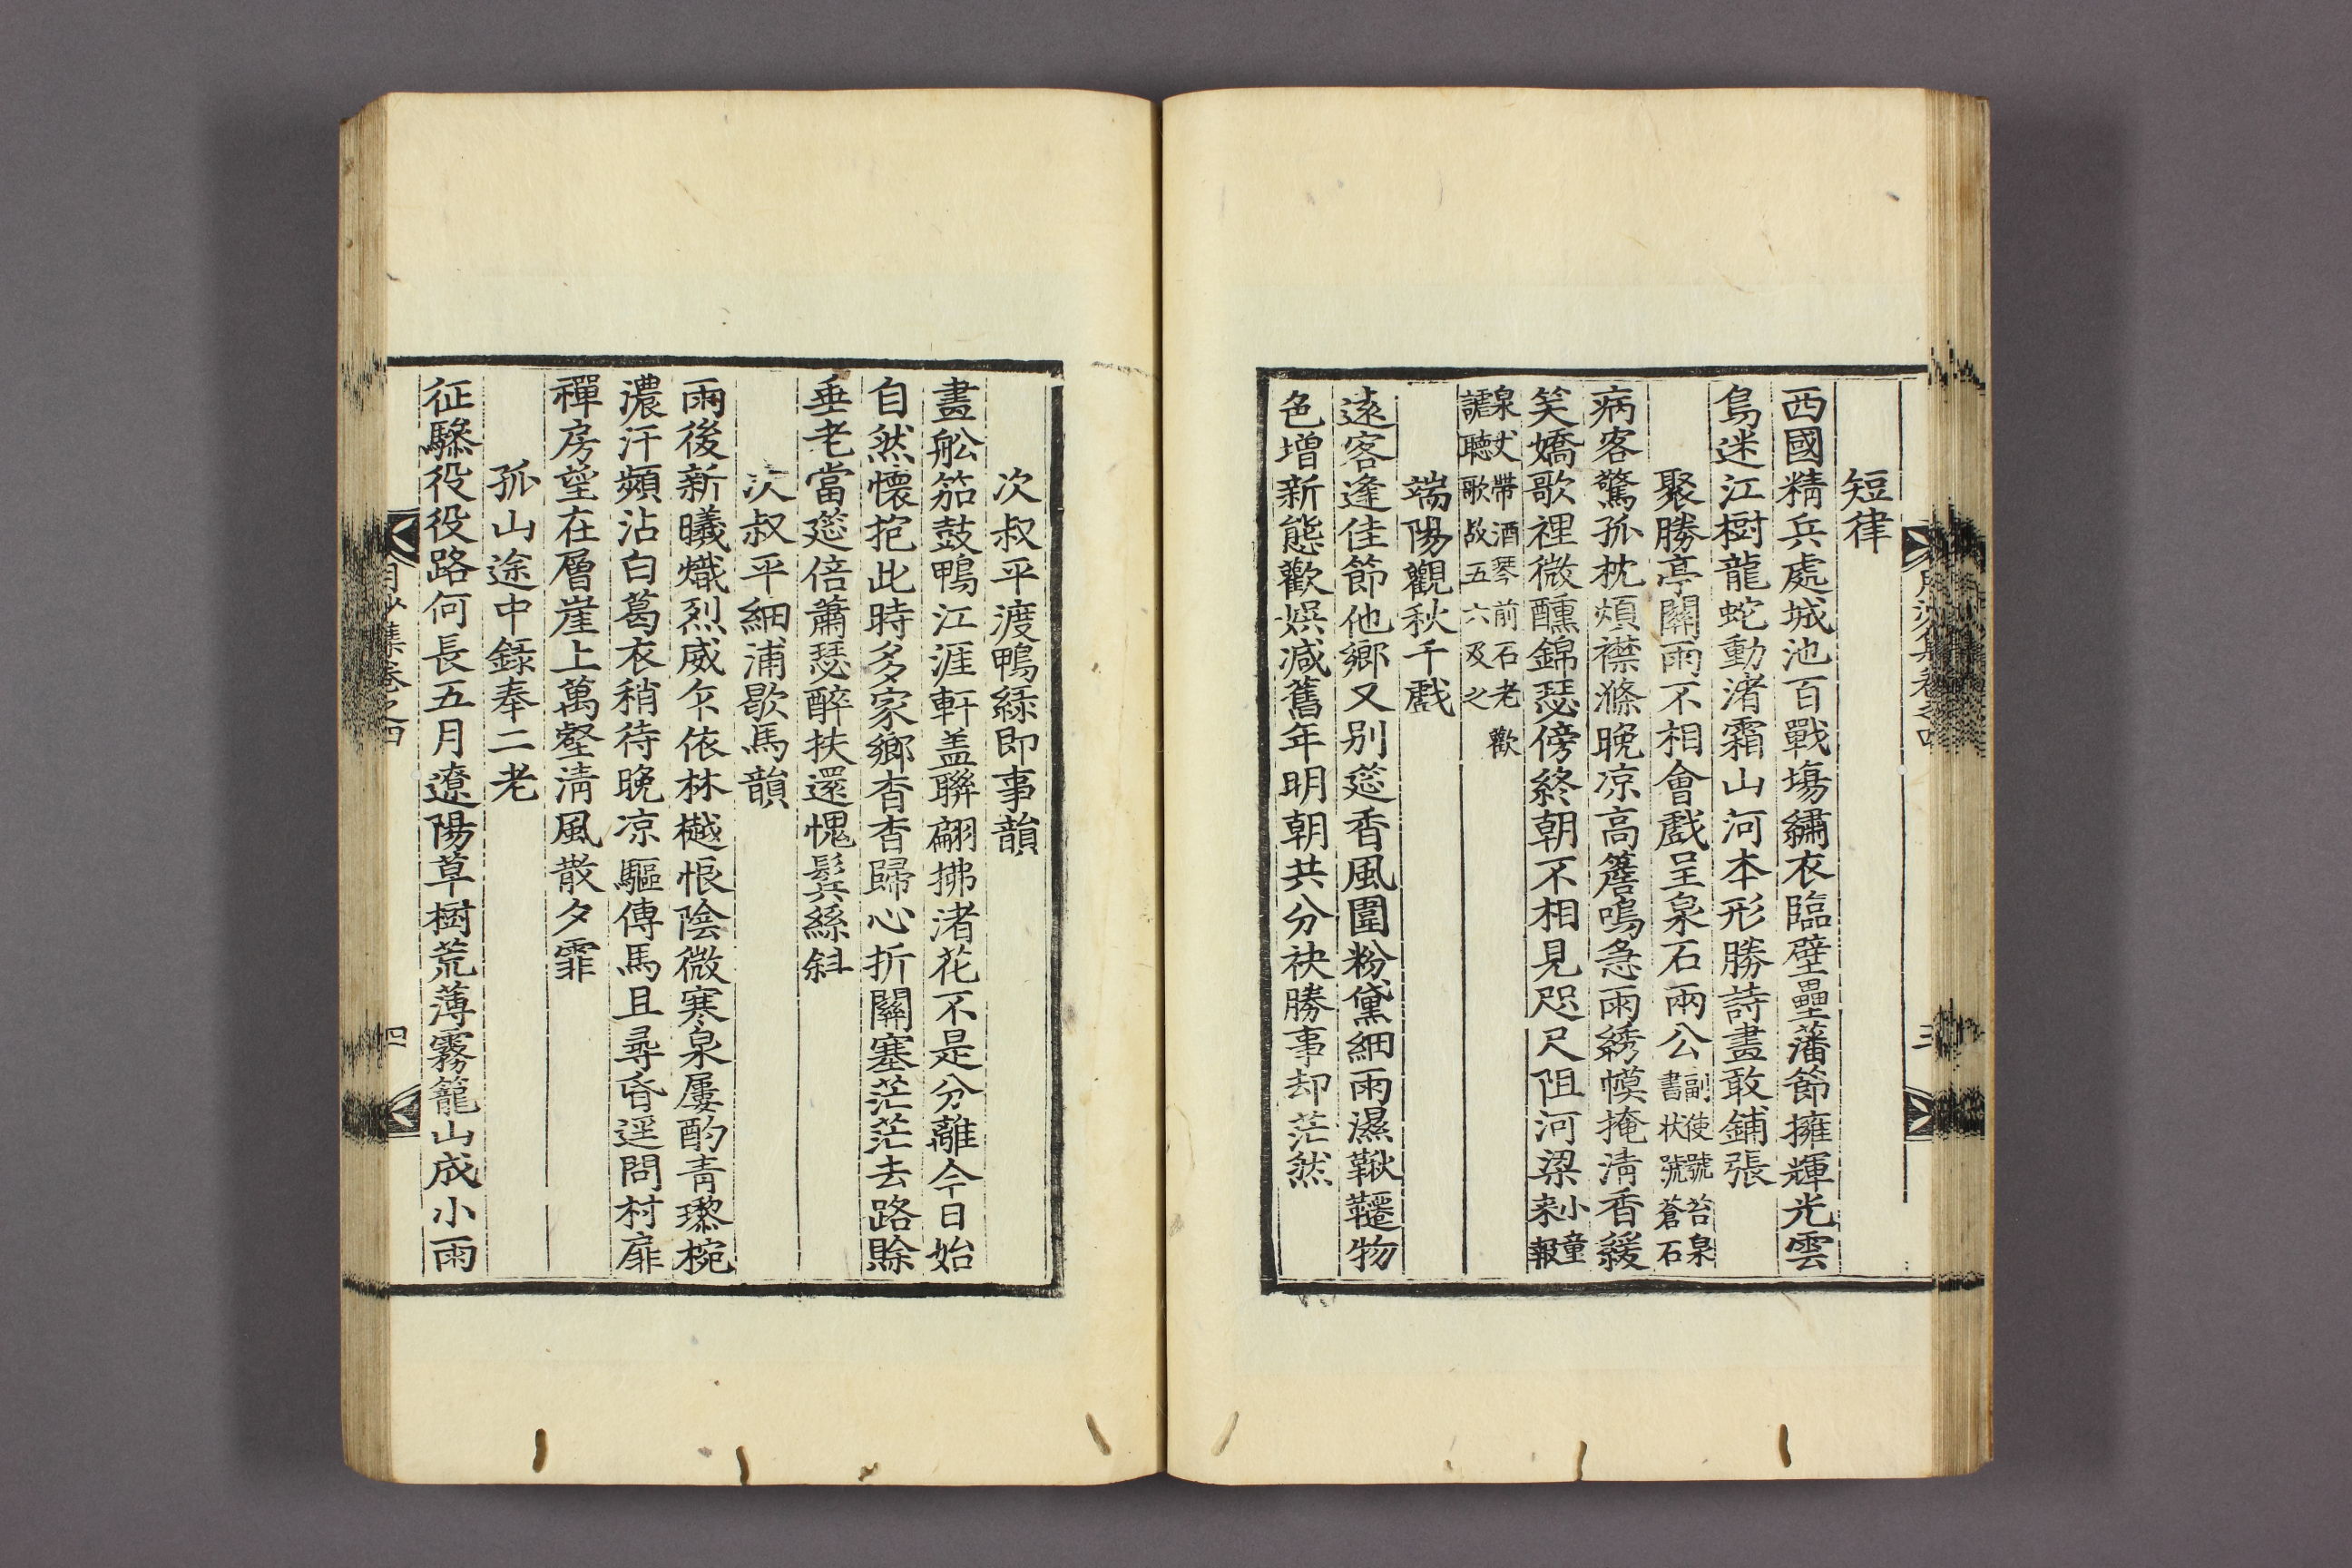 短律
西國精兵處城池百戰塲繡衣臨壁壘藩節擁輝光雲
鳥迷江樹龍蛇動渚霜山河本形勝詩畫敢鋪張
聚勝亭關雨不相會戲呈泉石兩公副使號苔泉書状號蒼石
病客驚孤枕煩襟滌晩凉高簷鳴急雨綉幙掩淸香緩
笑嬌歌裡微醺錦瑟傍終朝不相見咫尺阻河梁小童來報
泉丈帶酒琴前石老歡
謔聴歌故五六及之
端陽觀秋千戲
遠客逢佳節他鄉又别筵香風圍粉黛細雨濕鞦韆物
色增新態歡娱减舊年明朝共分袂勝事却茫然
次叔平渡鴨綠即事韻
畫舩笳鼓鴨江涯軒盖聯翩拂渚花不是分離今日始
自然懷抱此時多家鄉杳杳歸心折關塞茫茫去路賖
垂老當筵倍蕭瑟醉扶還愧鬂絲斜
次叔平細浦歇馬韻
雨後新曦熾烈威乍依林樾恨陰微寒泉屢酌靑瓈椀
濃汗頻沾白葛衣稍待晩凉驅傳馬且尋昏逕問村扉
禪房望在層崖上萬壑淸風散夕霏
孤山途中録奉二老
征驂役役路何長五月遼陽草樹荒薄霧籠山成小雨
月沙集卷之四
四